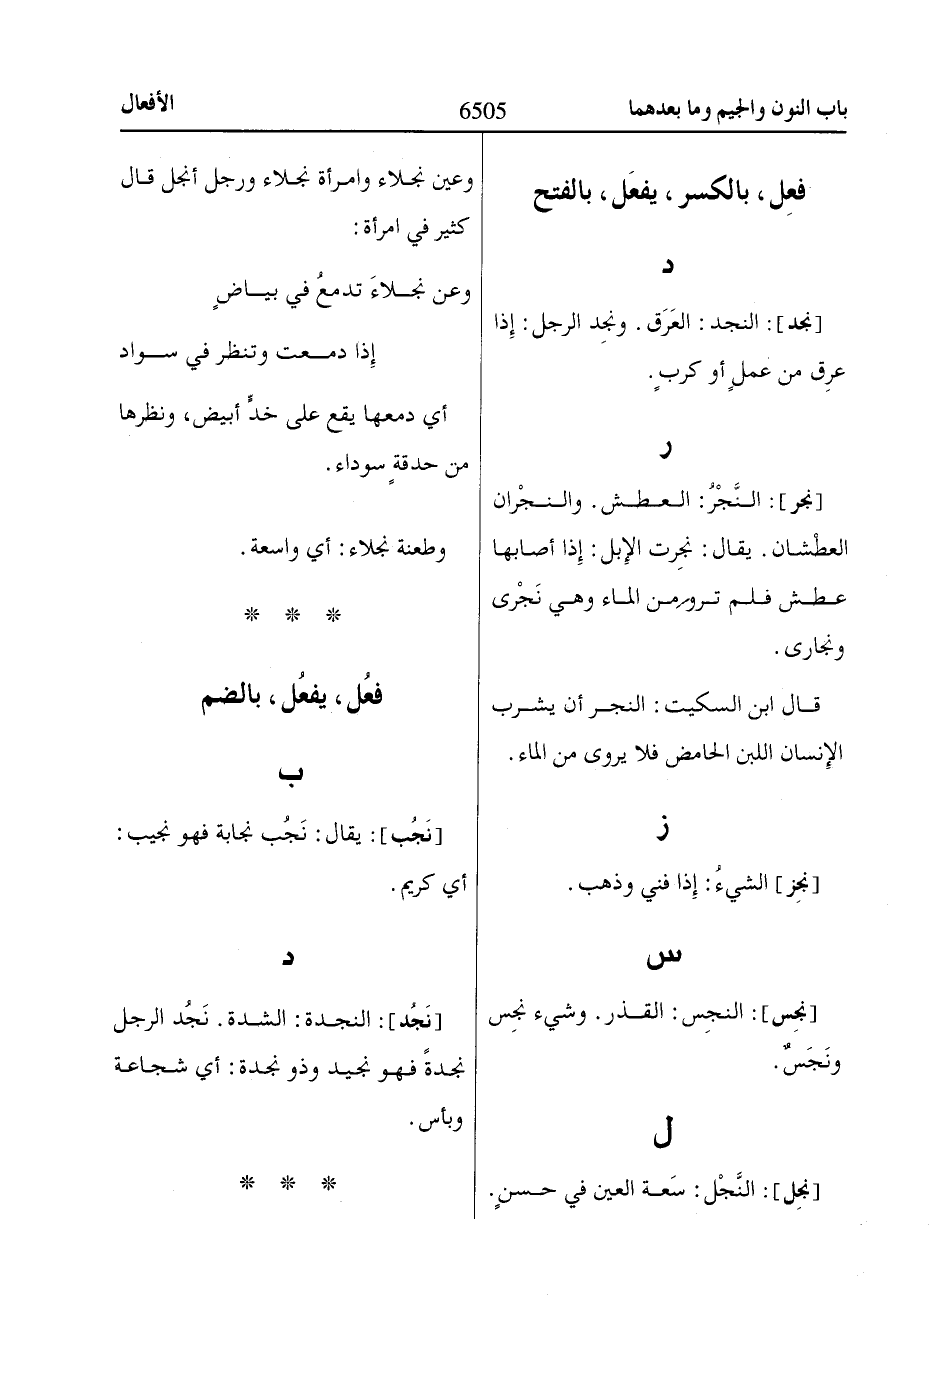 باب النون والجيم وما بعدهما
6505
الأفعال
فعِل، بالكسر، يفعَل، بالفتح
د
[نجد]: النجد: العَرَق. ونجِد الرجل: إذا
عرِق من عملٍ أو كربٍ.
ر
[نجر]: النَّجْرُ: العطش. والنجْران
العطْشان. يقال: نجِرت الإبل: إذا أصابها
عطش فلم تروَ من الماء وهي نَجْرى
ونجارى.
قال ابن السكيت: النجر أن يشرب
الإنسان اللبن الحامض فلا يروى من الماء.
ز
[نجِز] الشيءُ: إذا فني وذهب.
س
[نجِس]: النجِس: القذر. وشيء نجِس
ونَجَسٌ.
ل
[نجِل]: النَّجْل: سَعة العين في حسنٍ.
وعين نجلاء وامرأة نجلاء ورجل أنجل قال
كثير في امرأة:
وعن نجلاءَ تدمعُ في بياضٍ
إذا دمعت وتنظر في سواد
أي دمعها يقع على خدٍّ أبيض، ونظرها
من حدقةٍ سوداء.
وطعنة نجلاء: أي واسعة.
* * *
فعُل، يفعُل، بالضم
ب
[نَجُب]: يقال: نَجُب نجابة فهو نجيب:
أي كريم.
د
[نَجُد]: النجدة: الشدة. نَجُد الرجل
نجدةً فهو نجيد وذو نجدة: أي شجاعة
وبأس.
* * *